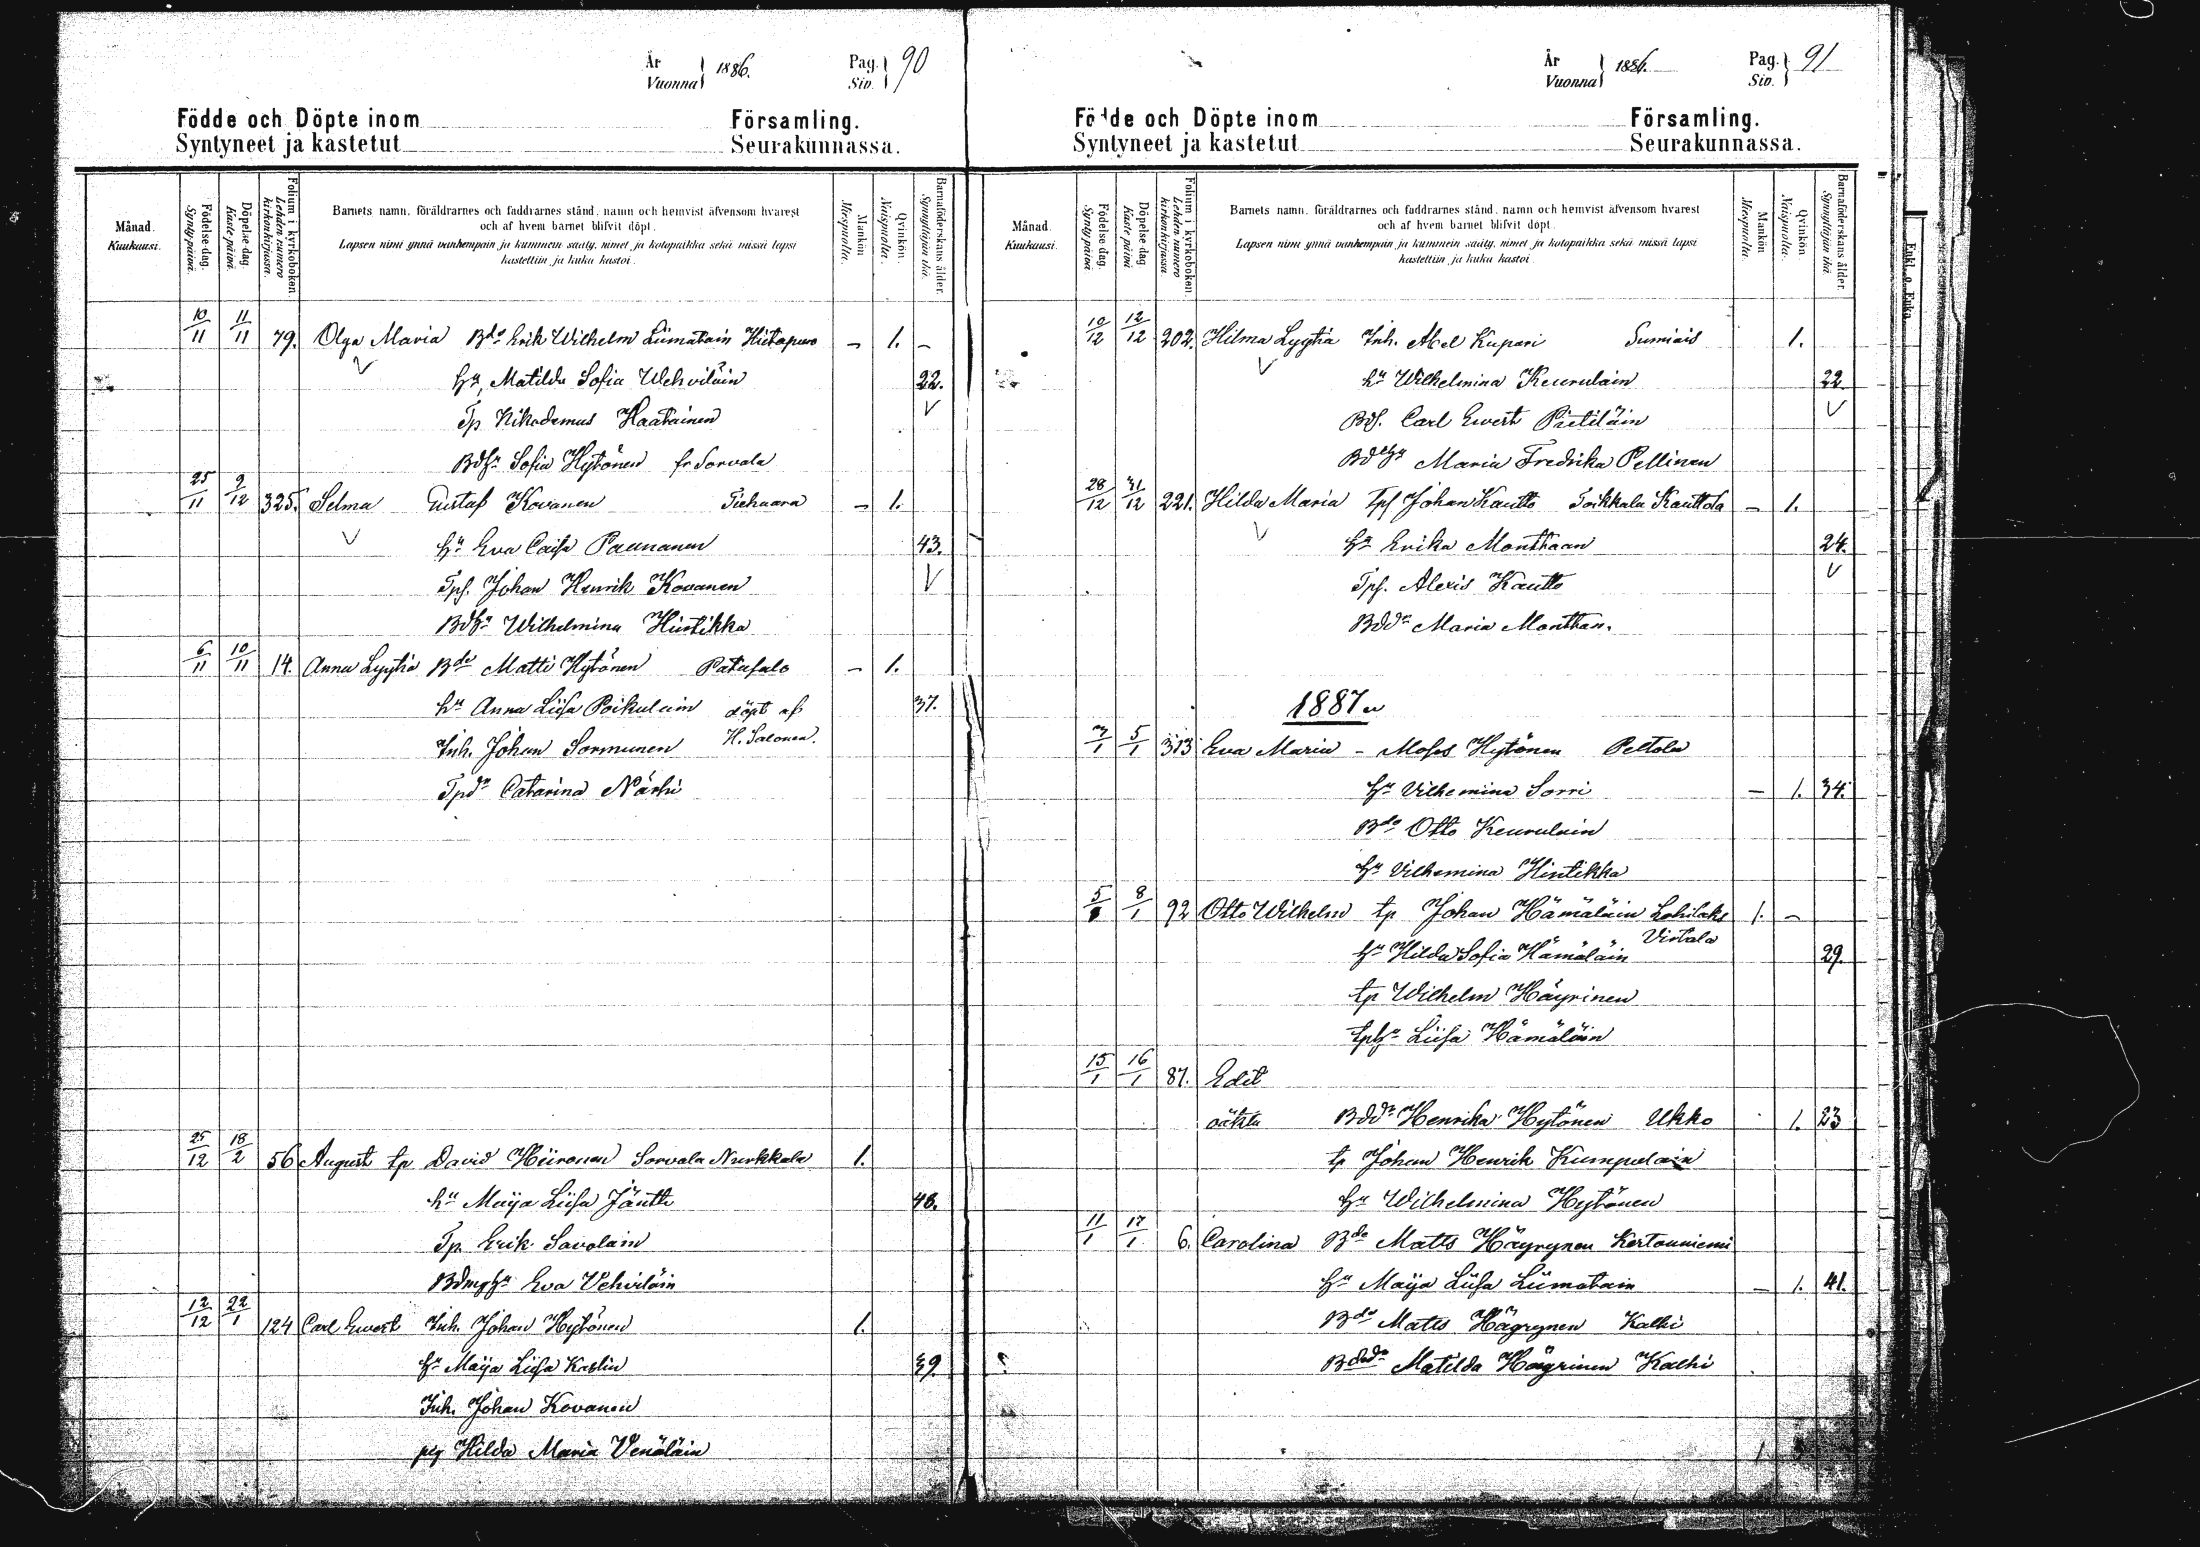 År
Vuonna } 1886. Pag.
Siv. } 90
Födde och Döpte inom Församling.
Syntyneet ja kastetut Seurakunnassa.
Månad.
Kuukausi.
Födelse dag.
Synty päivä.
Döpelse dag.
Kaste päivä.
Folium i kyrkoboken.
Lehden numero kirkonkirjassa.
Barnets namn, föräldrarnes och faddrarnes stånd, namn och hemvist äfvensom hvarest
och af hvem barnet blifvit döpt.
Lapsen nimi ynnä vanhempain ja kummein sääty, nimet ja kotopaikka sekä missä lapsi
kastettiin ja kuka kastoi.
Mankön
Miespuolta.
Qvinkön.
Naispuolta.
Barnaföderskans ålder.
Synnyttäjän ikä.
10/11 11/11 79. Olga Maria Bde Erik Wilhelm Liimatain Hietapuro – 1. –
hu Matilda Sofia Wehviläin 22.
Tp Nikodemus Haatainen V
Bdhu Sofia Hytönen fr Sorvala
25/11 9/12 325. Selma Gustaf Kovanen Tiehaara – 1.
hu Eva Caisa Paananen 43.
Tph. Johan Henrik Kovanen V
Bdhu Wilhelmina Hintikka
6/11 10/11 14. Anna Lyytia Bde Matti Hytönen Patasalo – 1.
hu Anna Liisa Poikulain döpt af 37.
Inh. Johan Sormunen H. Salonen.
Tpdr Catarina Närhi
25/12 18/2 56 August tp David Hiironen Sorvala Nurkkala 1.
hu Maija Liisa Jäntti 48.
Tp Erik Savolain
Bdmghu Eva Vehviläin
12/12 22/1 124 Carl Ewert Inh. Johan Hytönen 1.
hu Maija Liisa Kaslin 39.
Inh. Johan Kovanen
pig Hilda Maria Venäläin
År
Vuonna } 1886. Pag.
Siv. } 91
Födde och Döpte inom Församling.
Syntyneet ja kastetut Seurakunnassa.
Månad.
Kuukausi.
Födelse dag.
Synty päivä.
Döpelse dag.
Kaste päivä.
Folium i kyrkoboken.
Lehden numero kirkonkirjassa.
Barnets namn, föräldrarnes och faddrarnes stånd, namn och hemvist äfvensom hvarest
och af hvem barnet blifvit döpt.
Lapsen nimi ynnä vanhempain ja kummein sääty, nimet ja kotopaikka sekä missä lapsi
kastettiin ja kuka kastoi.
Mankön
Miespuolta.
Qvinkön.
Naispuolta.
Barnaföderskans ålder.
Synnyttäjän ikä.
Enkl. o. Enka
10/12 12/12 202. Hilma Lyytia Inh. Abel Kupari Sumiais 1.
hu Wilhelmina Keurulain 22
Bds. Carl Ewert Pietiläin V
Bdehu Maria Fredrika Pellinen
28/12 31/12 221. Hilda Maria Tps Johan Kautto Toikkala Kauttola – 1.
hu Erika Monthaan 24.
Tps. Alexis Kautto V
Bddr Maria Monthan.
1887
3/1 5/1 313 Eva Maria – Moses Hytönen Peltola
hu Vilhemina Sorri – 1. 34.
Bde Otto Keurulain
hu Vilhemina Hintikka
5/1 8/1 92 Otto Wilhelm tp Johan Hämäläin Lohilaks 1. –
Virtala
hu Hilda Sofia Hämäläin 29.
tp Wilhelm Häyrinen
tphu Liisa Hämäläin
15/1 16/1 87. Edit
oäkta Bddr Henrika Hytönen Ukko 1. 23
tp Johan Henrik Kumpulain
hu Wilhelmina Hytönen
11/1 17/1 6. Carolina Bde Matts Häyrynen Kertouniemi
hu Maija Liisa Liimatain – 1. 41.
Bde Matts Häyrynen Kalhi
Bdedr Matilda Häyrinen Kalhi